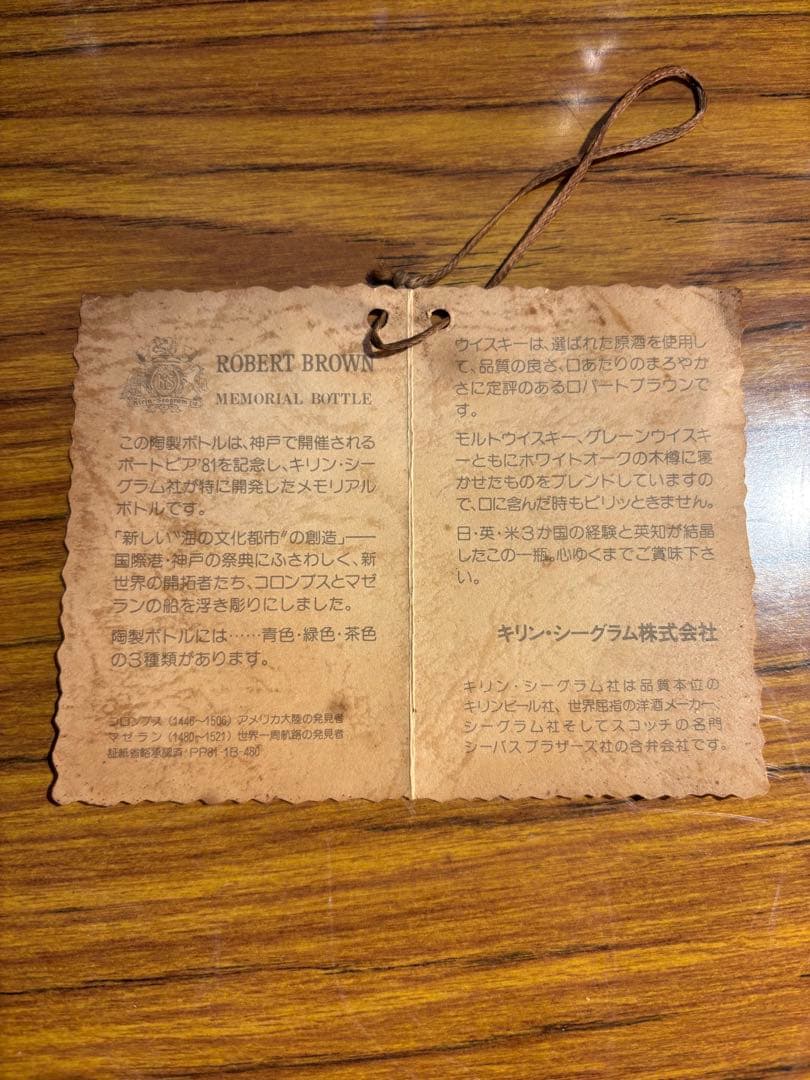 ROBERT BROWN
MEMORIAL BOTTLE
この陶製ボトルは、神戸で開催される
ポートピア'81を記念し、キリン・シー
グラム社が特に開発したメモリアル
ボトルです。
「新しい“海の文化都市”の創造」——
国際港・神戸の祭典にふさわしく、新
世界の開拓者たち、コロンブスとマゼ
ランの船を浮き彫りにしました。
陶製ボトルには……青色・緑色・茶色
の3種類があります。
コロンブス(1446〜1506)アメリカ大陸の発見者
マゼラン(1480〜1521)世界一周航路の発見者
証紙省略承認済 PP81-1B-460
ウイスキーは、選ばれた原酒を使用し
て、品質の良さ、口あたりのまろやか
さに定評のあるロバートブラウンで
す。
モルトウイスキー、グレーンウイスキ
ーともにホワイトオークの木樽に寝
かせたものをブレンドしていますの
で、口に含んだ時もピリッときません。
日・英・米3か国の経験と英知が結晶
したこの一瓶。心ゆくまでご賞味下さ
い。
キリン・シーグラム株式会社
キリン・シーグラム社は品質本位の
キリンビール社、世界屈指の洋酒メーカー、
シーグラム社そしてスコッチの名門
シーバスブラザーズ社の合弁会社です。